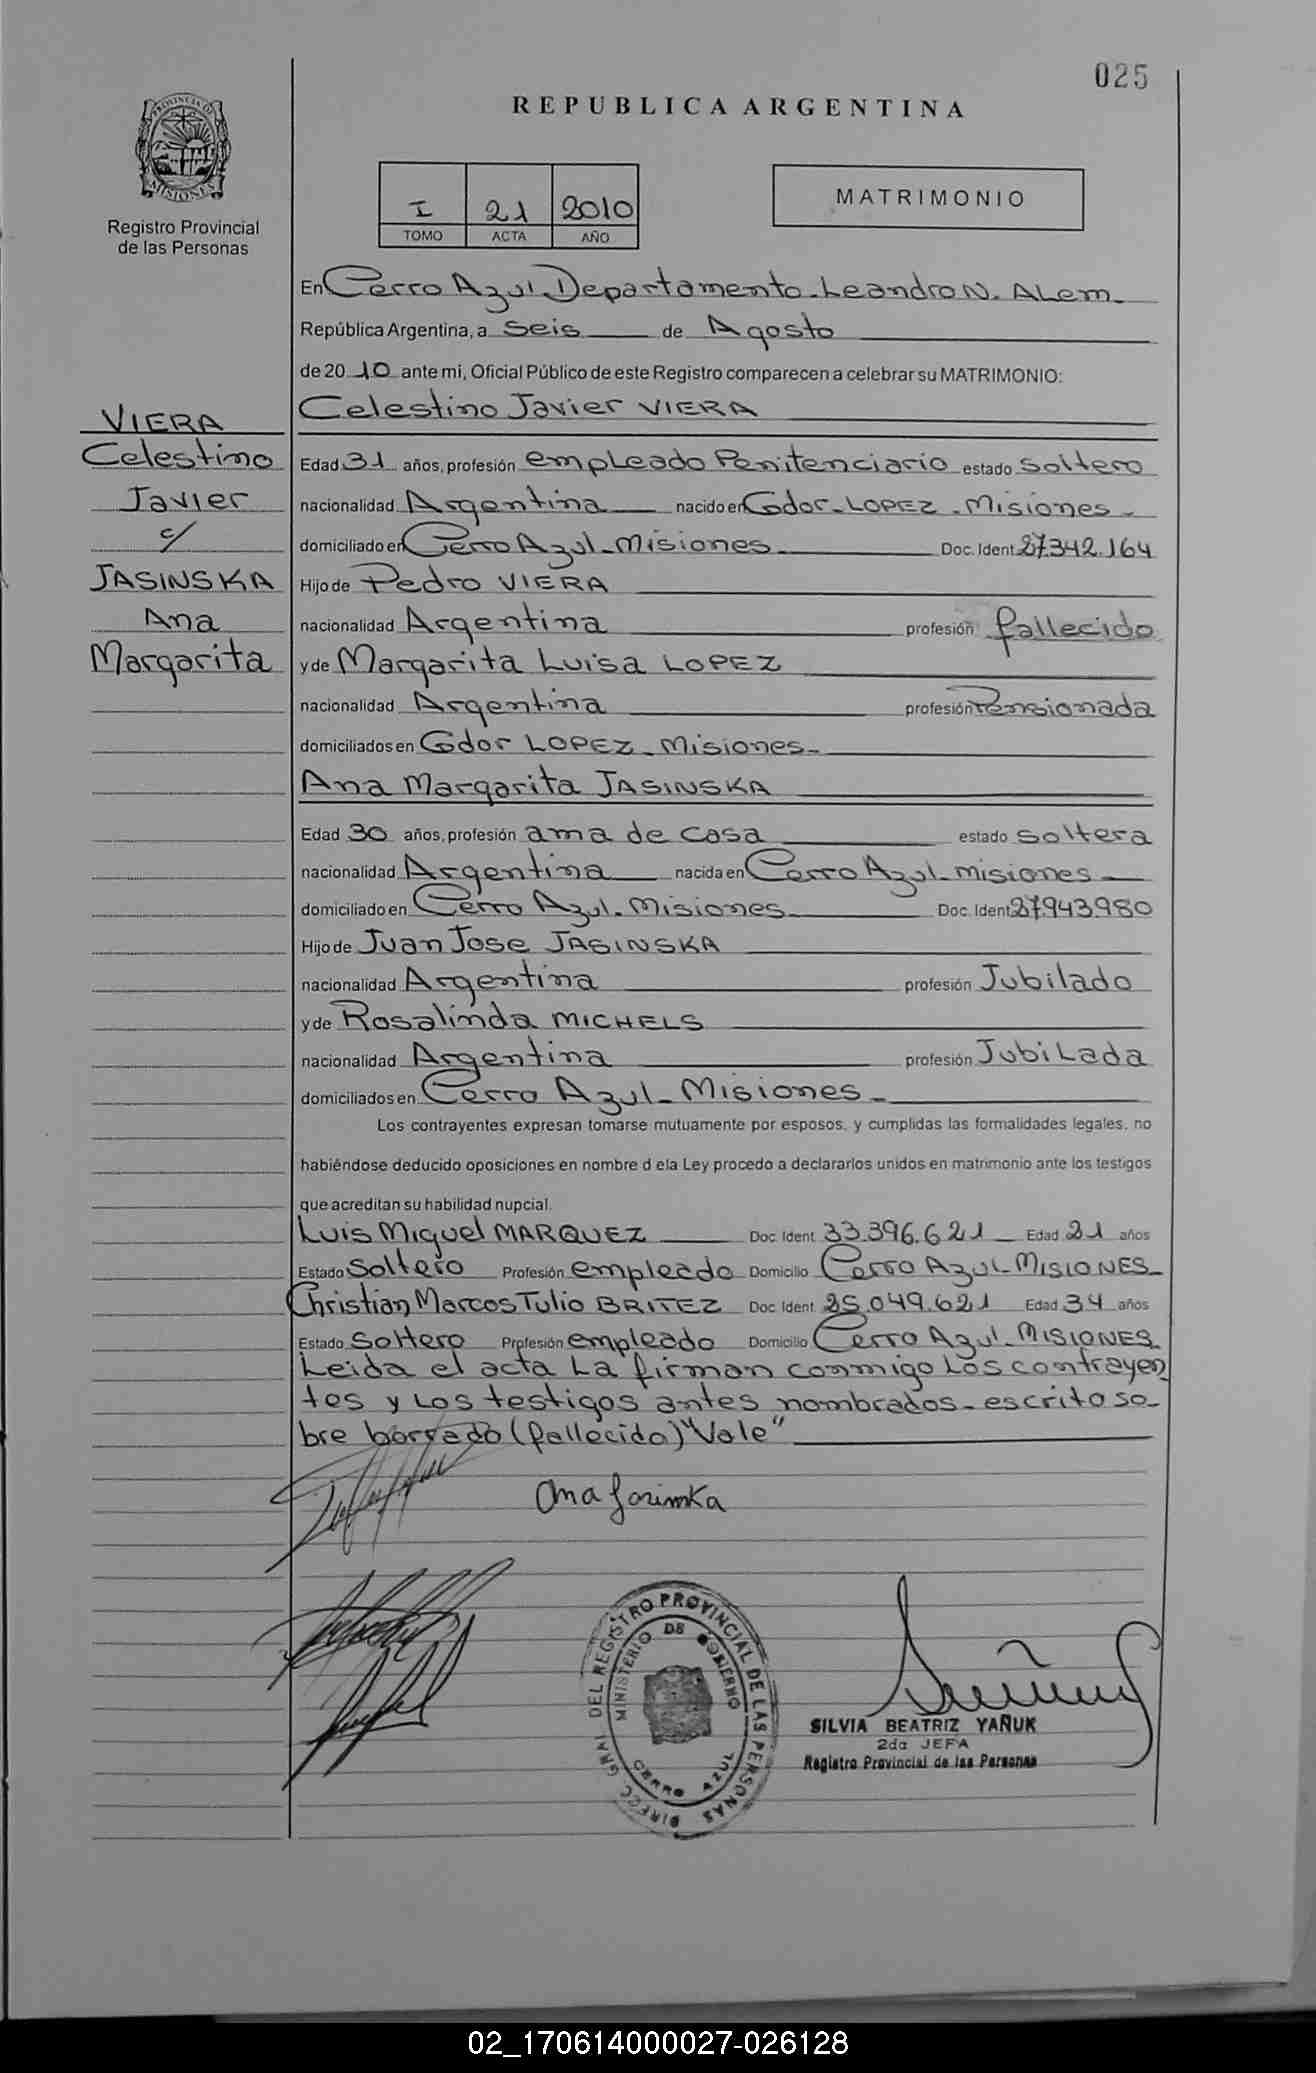 025
REPUBLICA ARGENTINA
PROVINCIA DE
MISIONES
Registro Provincial
de las Personas
I 21 2010
TOMO ACTA AÑO
MATRIMONIO
En Cerro Azul Departamento Leandro N. ALem
República Argentina, a seis de Agosto
de 20 10 ante mi, Oficial Público de este Registro comparecen a celebrar su MATRIMONIO:
Celestino Javier VIERA
VIERA
Celestino
Javier
c/
JASINSKA
Ana
Margarita
Edad 31 años, profesión empleado Penitenciario estado soltero
nacionalidad Argentina nacido en Gdor. LOPEZ - Misiones -
domiciliado en Cerro Azul - Misiones Doc. Ident 27.342.164
Hijo de Pedro VIERA
nacionalidad Argentina profesión fallecido
y de Margarita Luisa LOPEZ
nacionalidad Argentina profesión Pensionada
domiciliados en Gdor LOPEZ - Misiones -
Ana Margarita JASINSKA
Edad 30 años, profesión ama de casa estado soltera
nacionalidad Argentina nacida en Cerro Azul - misiones
domiciliado en Cerro Azul - Misiones Doc. Ident 27.943.980
Hijo de Juan Jose JASINSKA
nacionalidad Argentina profesión Jubilado
y de Rosalinda MICHELS
nacionalidad Argentina profesión JubiLada
domiciliados en Cerro Azul - Misiones -
Los contrayentes expresan tomarse mutuamente por esposos, y cumplidas las formalidades legales, no
habiéndose deducido oposiciones en nombre d ela Ley procedo a declararlos unidos en matrimonio ante los testigos
que acreditan su habilidad nupcial.
Luis Miguel MARQUEZ Doc. Ident 33.396.621 Edad 21 años
Estado Soltero Profesión empleado Domicilio Cerro Azul - MISIONES -
Christian Marcos Tulio BRITEZ Doc. Ident 25.049.621 Edad 34 años
Estado Soltero Profesión empleado Domicilio Cerro Azul - MISIONES.
Leida el acta La firman conmigo Los contrayen
tes y Los testigos antes nombrados - escrito so-
bre borrado (fallecido) "Vale"
Ana Jasinska
DIRECC. GRAL DEL REGISTRO PROVINCIAL DE LAS PERSONAS
MINISTERIO DE GOBIERNO
CERRO AZUL
SILVIA BEATRIZ YAÑUK
2da JEFA
Registro Provincial de las Personas
02_170614000027-026128